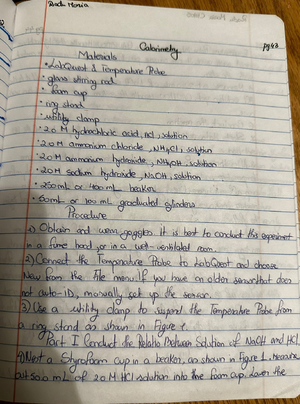 Calorimetry
pg 43
Materials
• LabQuest & Temperature Probe
• glass stirring rod
• foam cup
• ring stand
• utility clamp
• 2.0 M hydrochloric acid, HCl, solution
• 2.0 M ammonium chloride, NH4Cl, solution
• 2.0 M ammonium hydroxide, NH4OH, solution
• 2.0 M sodium hydroxide, NaOH, solution
• 250 mL or 400 mL beaker
• 50 mL or 100 mL graduated cylinders
Procedure
1) Obtain and wear goggles. It is best to conduct this experiment
in a fume hood or in a well-ventilated room.
2) Connect the Temperature Probe to LabQuest and choose
New from the File menu. If you have an older sensor that does
not auto-ID, manually set up the sensor.
3) Use a utility clamp to suspend the Temperature Probe from
a ring stand as shown in Figure 1.
Part I Conduct the Between Solution of NaOH and HCl
4) Nest a Styrofoam cup in a beaker as shown in Figure 1. Measure
out 50.0 mL of 2.0 M HCl solution into the foam cup. Lower the